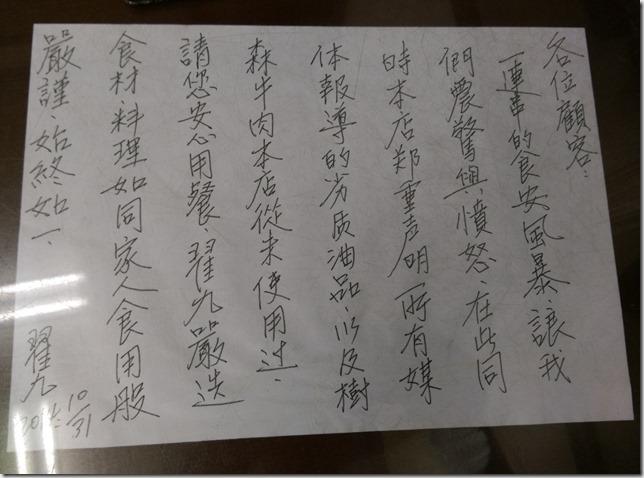 各位顧客：
一連串的食安風暴、讓我
們農驚與憤怒、在此同
時本店郑重声明所有媒
体報導的劣质油品、以及樹
森牛肉本店從未使用过、
請您安心用餐、翟九嚴选
食材、料理如同家人食用般
嚴謹、始終如一、 翟九
2014. 10/31